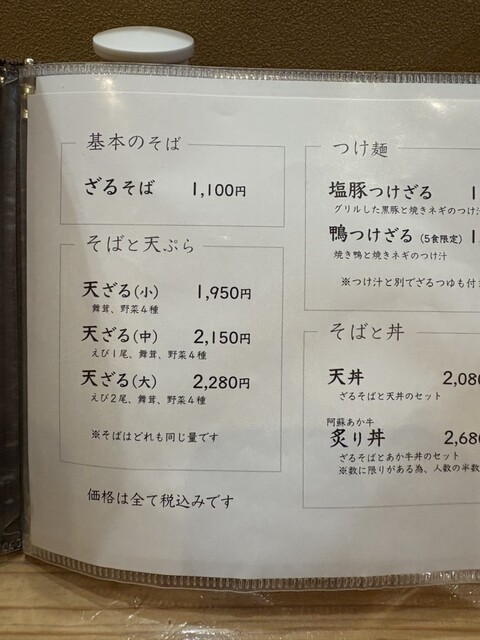 基本のそば
ざるそば 1,100円
そばと天ぷら
天ざる(小) 1,950円
舞茸、野菜4種
天ざる(中) 2,150円
えび1尾、舞茸、野菜4種
天ざる(大) 2,280円
えび2尾、舞茸、野菜4種
※そばはどれも同じ量です
価格は全て税込みです
つけ麺
塩豚つけざる 1
グリルした黒豚と焼きネギのつけ汁
鴨つけざる (5食限定) 1
焼き鴨と焼きネギのつけ汁
※つけ汁と別でざるつゆも付
そばと丼
天丼 2,080
ざるそばと天丼のセット
阿蘇あか牛
炙り丼 2,680
ざるそばとあか牛丼のセット
※数に限りがある為、人数の半数